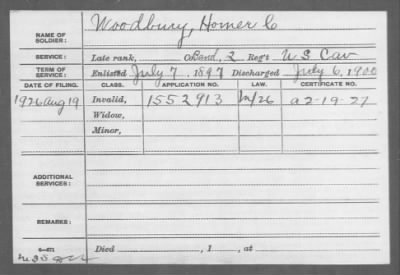 NAME OF SOLDIER: Woodbury, Homer C
SERVICE: Late rank, Co. Band, 2 Reg't U S Cav
TERM OF SERVICE: Enlisted July 7, 1897 Discharged July 6, 1900
DATE OF FILING. CLASS. APPLICATION NO. LAW. CERTIFICATE NO.
1926 Aug 19 Invalid, 1552913 a2-19-27
Widow,
Minor,
ADDITIONAL SERVICES:
REMARKS:
Died , 1 , at